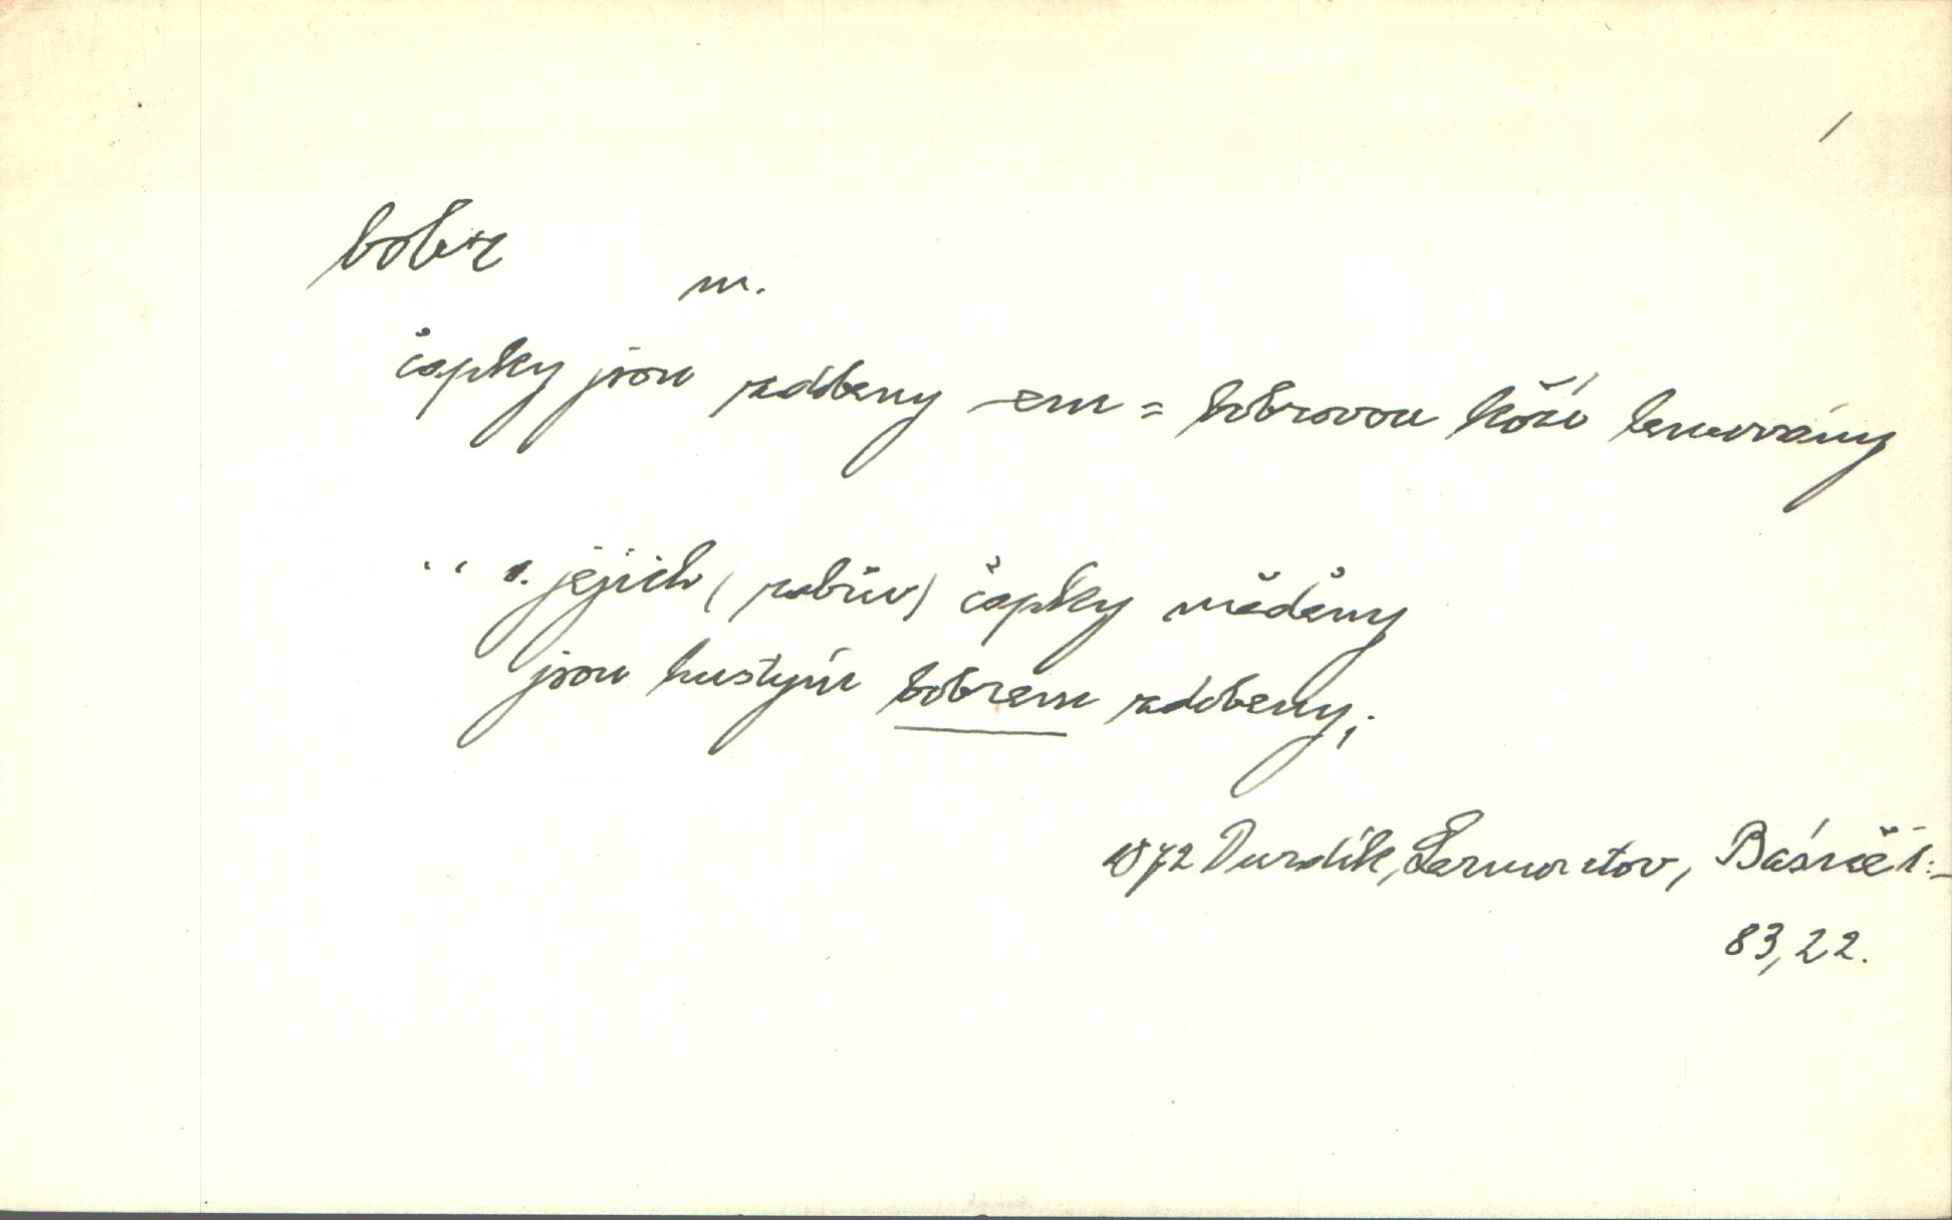 /
bobr
m.
čapky jsou zdobeny -em = bobrovou koží lemovány
... jejich (rabův) čapky
jsou hustým bobrem zdobeny;
1872 Durdík, Lermontov, Básně 1:-
83,22.